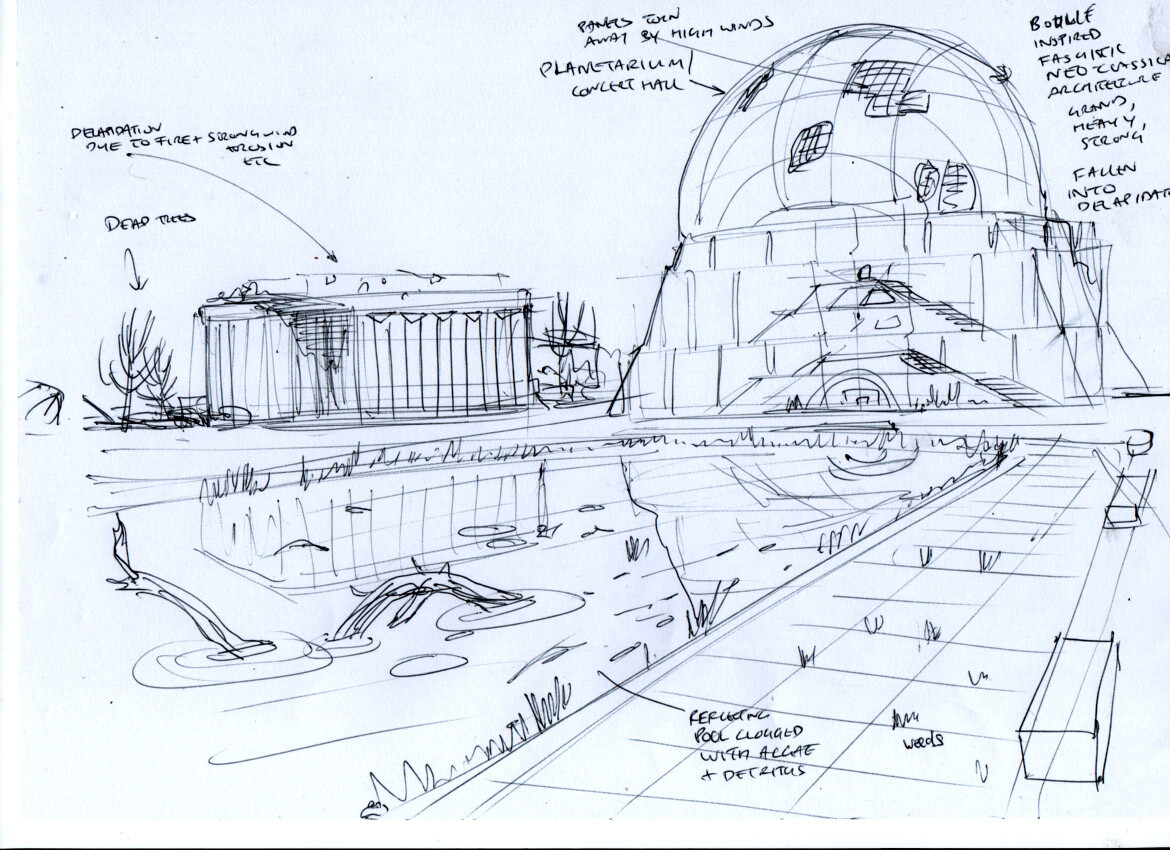 PANELS TORN
AWAY BY HIGH WINDS
PLANETARIUM/
CONCERT HALL
BOULLE
INSPIRED
FASCISTIC
NEO-CLASSICA
ARCHITECTURE
GRAND,
HEAVY,
STRONG,
FALLEN
INTO
DELAPIDAT
DELAPIDATION
DUE TO FIRE + STRONG WIND
EROSION
ETC
DEAD TREES
REFLECTING
POOL CLOGGED
WITH ALGAE
+ DETRITUS
WEEDS